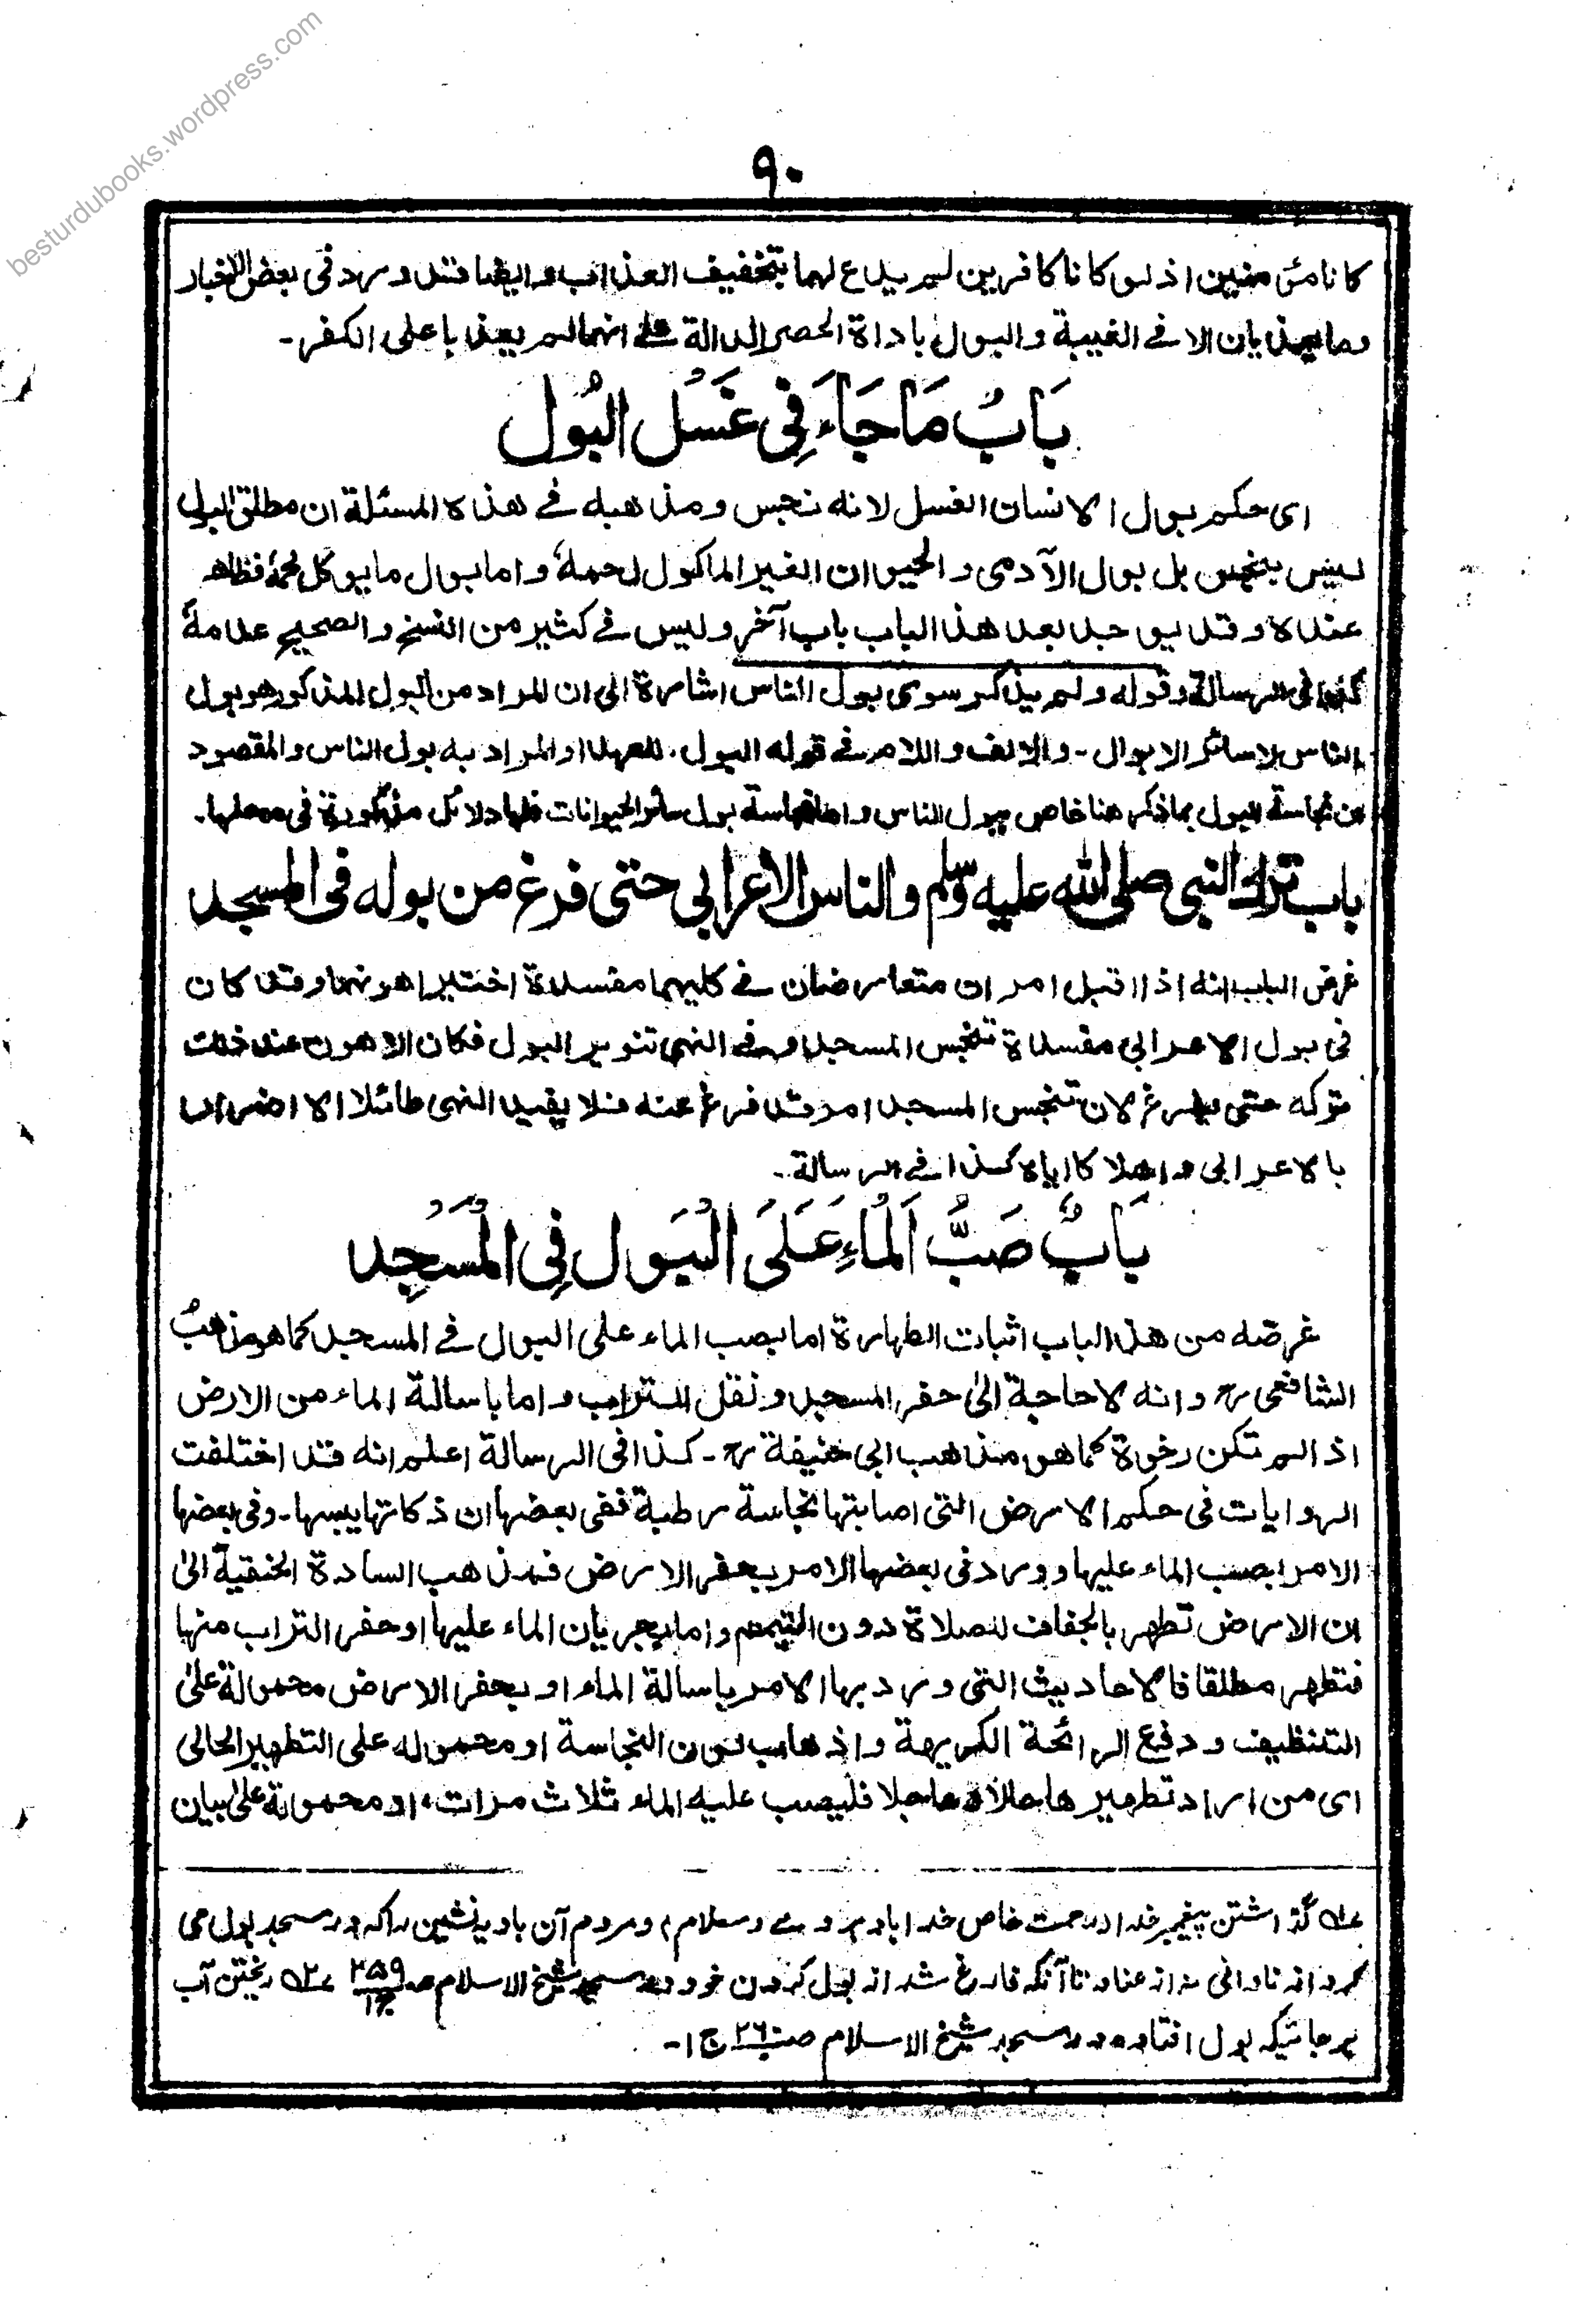 besturdubooks.wordpress.com
٩٠
كانا مؤمنين اذ لو كانا كافرين لم يدع لهما بتخفيف العذاب وايضا قد ورد فى بعض الاخبار
وما يعذبان الا فے الغيبة والبول باداة الحصر الدالة علے انهما لم يعذبا على الكفر۔
بَابُ مَا جَاءَ فِى غَسْلِ الْبُول
اى حكم بول الانسان الغسل لانه نجس ومذهبه فے هذه المسئلة ان مطلق البول
ليس بنجس بل بول الآدمى والحيوان الغير الماكول لحمهٗ واما بول ما يوكل لحمهٗ فطاهر
عنده وقد يوجد بعد هذا الباب باب آخر وليس فے كثير من النسخ والصحيح عدمهٗ
كذا فى الرسالة وقوله ولم يذكر سوى بول الناس اشارة الى ان المراد من البول المذكور هو بول
الناس لا سائر الابوال۔ والالف واللام فے قوله البول، للعهد او المراد به بول الناس والمقصود
من نجاسة البول بما ذكر هنا خاص ببول الناس واما نجاسة بول سائر الحيوانات فلها دلائل مذكورة فى محلها۔
باب ترك النبى صلى الله عليه وسلم والناس الاعرابي حتى فرغ من بوله فى المسجد
غرض الباب انه اذا اقبل امران متعارضان فے كليهما مفسدة اختير اهونهما وقد كان
فى بول الاعرابي مفسدة تنجس المسجد وفے النهى تنوير البول فكان الاهون عند ذلك
تركه حتى يفرغ لان تنجس المسجد امر قد فرغ عنه فلا يفيد النهى طائلا الا اضرارا
بالاعرابى واهلاكا اياه كذا فے الرسالة۔
بَابُ صَبِّ اَلْمَاءِ عَلَى الْبَوْلِ فِى الْمَسْجِد
غرضه من هذا الباب اثبات الطهارة اما بصب الماء على البول فے المسجد كما هو مذهبُ
الشافعى رح وانه لا حاجة الىٰ حفر المسجد ونقل التراب واما باسالة الماء من الارض
اذا لم تكن رخوة كما هو مذهب ابى حنيفة رح۔ كذا فى الرسالة اعلم انه قد اختلفت
الروايات فى حكم الارض التى اصابتها نجاسة رطبة ففى بعضها ان ذكاتها يبسها۔ وفى بعضها
الامر بصب الماء عليها وورد فى بعضها الامر بحفر الارض فمذهب السادة الحنفية الىٰ
ان الارض تطهر بالجفاف للصلاة دون التيمم واما بجريان الماء عليها او حفر التراب منها
فتطهر مطلقا فالاحاديث التى ورد بها الامر باسالة الماء او بحفر الارض محمولة علىٰ
التنظيف ودفع الرائحة الكريهة واذهاب لون النجاسة او محموله على التطهير الحالى
اى من اراد تطهيرها حالا وعاجلا فليصب عليه الماء ثلاث مرات، او محمولة علىٰ بيان
عله گذاشتن پیغمبر خدا درحمت خاص خدا باد بروے وسلام، ومردم آن بادیہ نشین راکہ در مسجد بول می
کرد از نادانی نہ از عناد تا آنکہ فارغ شد از بول کردن خود در مسجد شیخ الاسلام صـ ٢٥٩ ج١ عـ٢ـه ریختن آب
بر جائیکہ بول افتادہ در مسجد شیخ الاسلام صـ ٢٦ ج ا۔